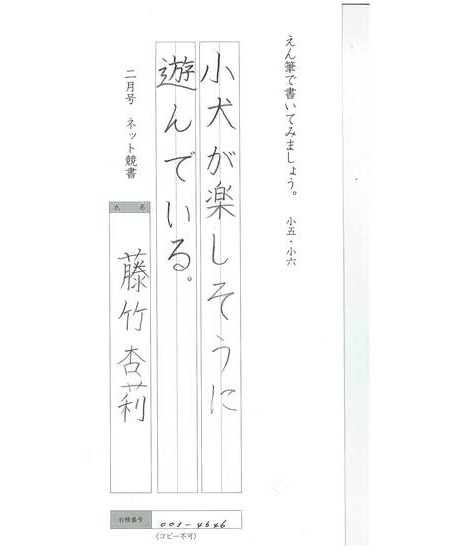 えん筆で書いてみましょう。 小五・小六
小犬が楽しそうに
遊んでいる。
二月号 ネット競書
氏 名
藤竹杏莉
会員番号 003-4646
(コピー不可)